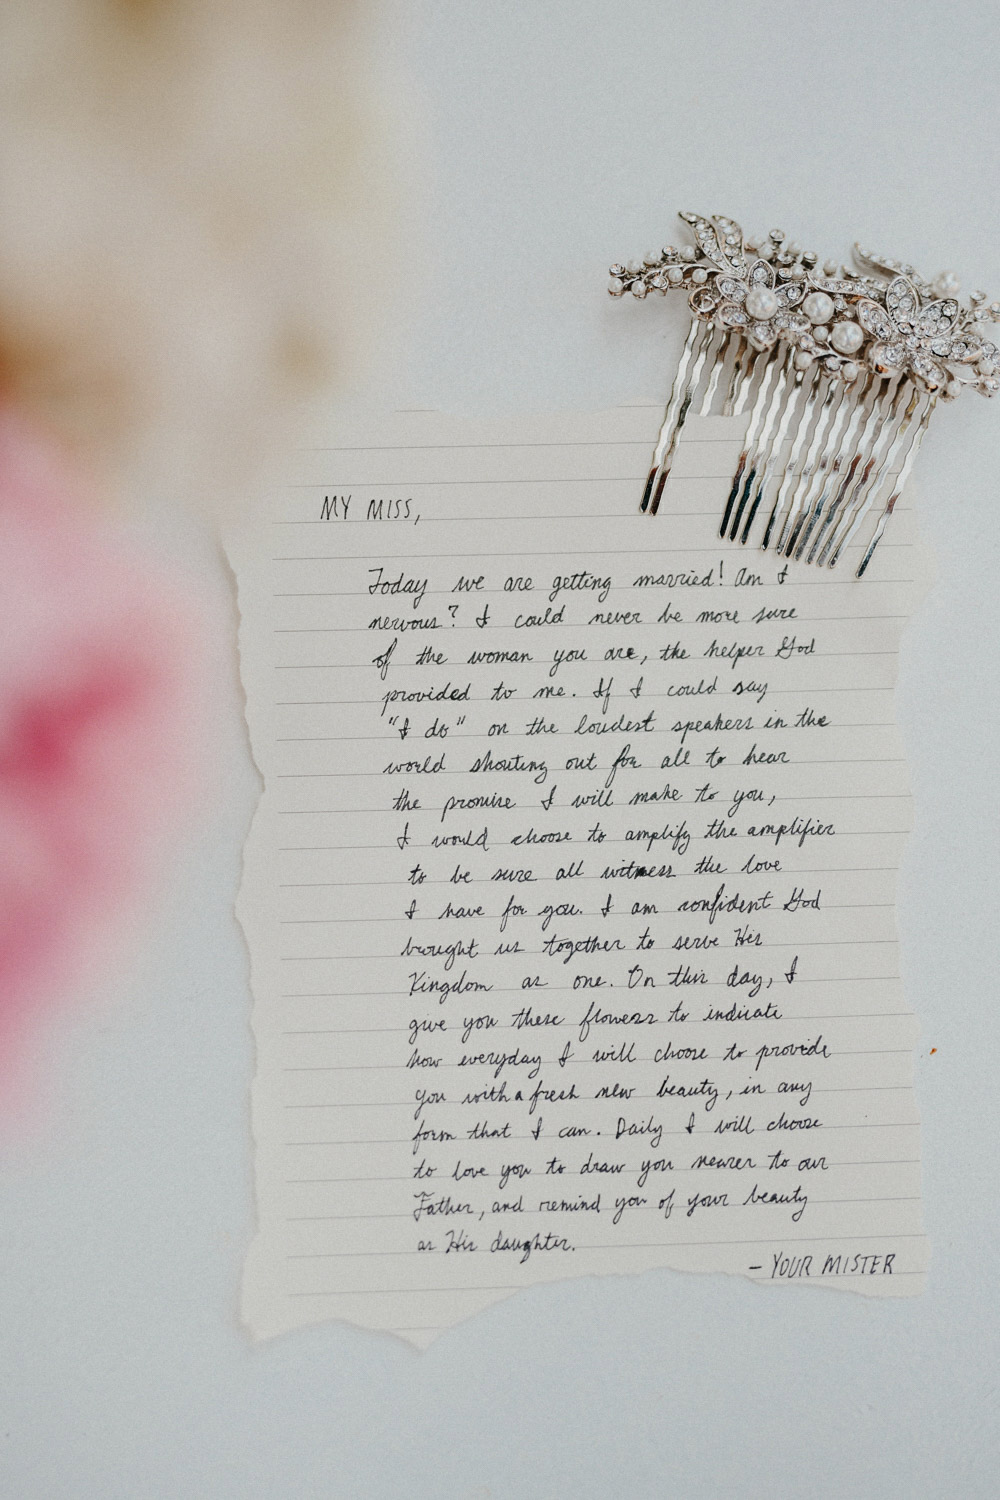 MY MISS,
Today we are getting married! Am I
nervous? I could never be more sure
of the woman you are, the helper God
provided to me. If I could say
"I do" on the loudest speakers in the
world shouting out for all to hear
the promise I will make to you,
I would choose to amplify the amplifier
to be sure all witness the love
I have for you. I am confident God
brought us together to serve His
Kingdom as one. On this day, I
give you these flowers to indicate
how everyday I will choose to provide
you with a fresh new beauty, in any
form that I can. Daily I will choose
to love you to draw you nearer to our
Father, and remind you of your beauty
as His daughter.
- YOUR MISTER